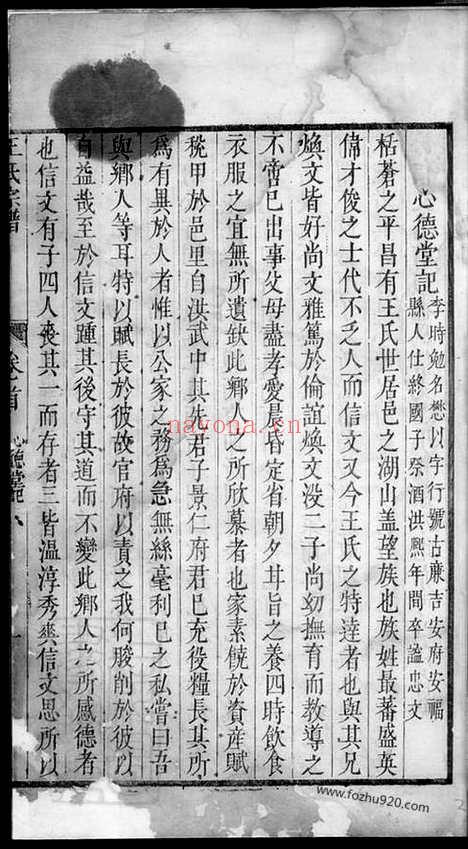 心德堂記
李時勉名懋以字行號古廉吉安府安福
縣人仕終國子祭酒洪熙年間卒謚忠文
栝蒼之平昌有王氏世居邑之湖山盖望族也族姓最蕃盛英
偉才俊之士代不乏人而信文又今王氏之特達者也與其兄
煥文皆好尚文雅篤於倫誼煥文没二子尚幼撫育而教導之
不啻已出事父母盡孝愛晨昏定省朝夕耳旨之養四時飲食
衣服之宜無所遺缺此鄉人之所欣慕者也家素饒於資産賦
稅甲於邑里自洪武中其先君子景仁府君巳充役糧長其所
爲有異於人者惟以公家之務爲急無絲毫利巳之私嘗曰吾
與鄉人等耳特以賦長於彼故官府以責之我何朘削於彼以
自益哉至於信文踵其後守其道而不變此鄉人之所感德者
也信文有子四人喪其一而存者三皆溫淳秀爽信文思所以
王氏宗譜
卷首
心德堂記
nayona.cn
www.fozhu920.com